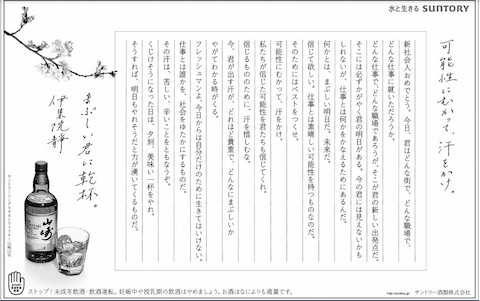 水と生きる SUNTORY
可能性にむかって、汗をかけ。
新社会人おめでとう。今日、君はどんな街で、どんな職場で、
どんな仕事に就いただろうか。
どんな仕事で、どんな職場であろうが、そこが君の新しい出発点だ。
そこには必ずかがやく君の明日がある。今の君には見えないかも
しれないが、仕事とは何かをかなえるためにあるんだ。
何かとは、まぶしい明日だ。未来だ。
信じて欲しい。仕事とは素晴しい可能性を持つものなのだ。
そのためにはベストをつくせ。
可能性にむかって、汗をかけ。
私たちが信じた可能性を君たちも信じてくれ。
信じるもののために、汗を惜しむな。
今、君が出す汗が、どれほど貴重で、どんなにまぶしいか
やがてわかる時がくる。
フレッシュマンよ。今日からは自分だけのために生きてはいけない。
仕事とは誰かを、社会をゆたかにするものだ。
その汗は、苦しい、辛いこともともなうぞ。
くじけそうになった日は、夕刻、美味い一杯をやれ。
そうすれば、明日もやれそうだと力が湧いてくるものだ。
まぶしい君に乾杯。
伊集院 静
山崎
ストップ!未成年飲酒・飲酒運転。妊娠中や授乳期の飲酒はやめましょう。お酒はなによりも適量です。
http://suntory.jp
サントリー酒類株式会社